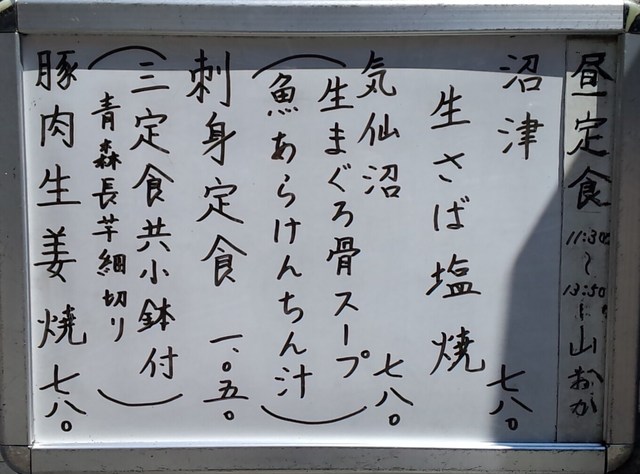 昼定食 11:30〜13:50 山おか
沼津 七八〇
生さば塩焼
気仙沼 七八〇
生まぐろ骨スープ
(魚あらけんちん汁)
刺身定食 一、〇五〇
(三定食共小鉢付
青森長芋細切り)
豚肉生姜焼 七八〇